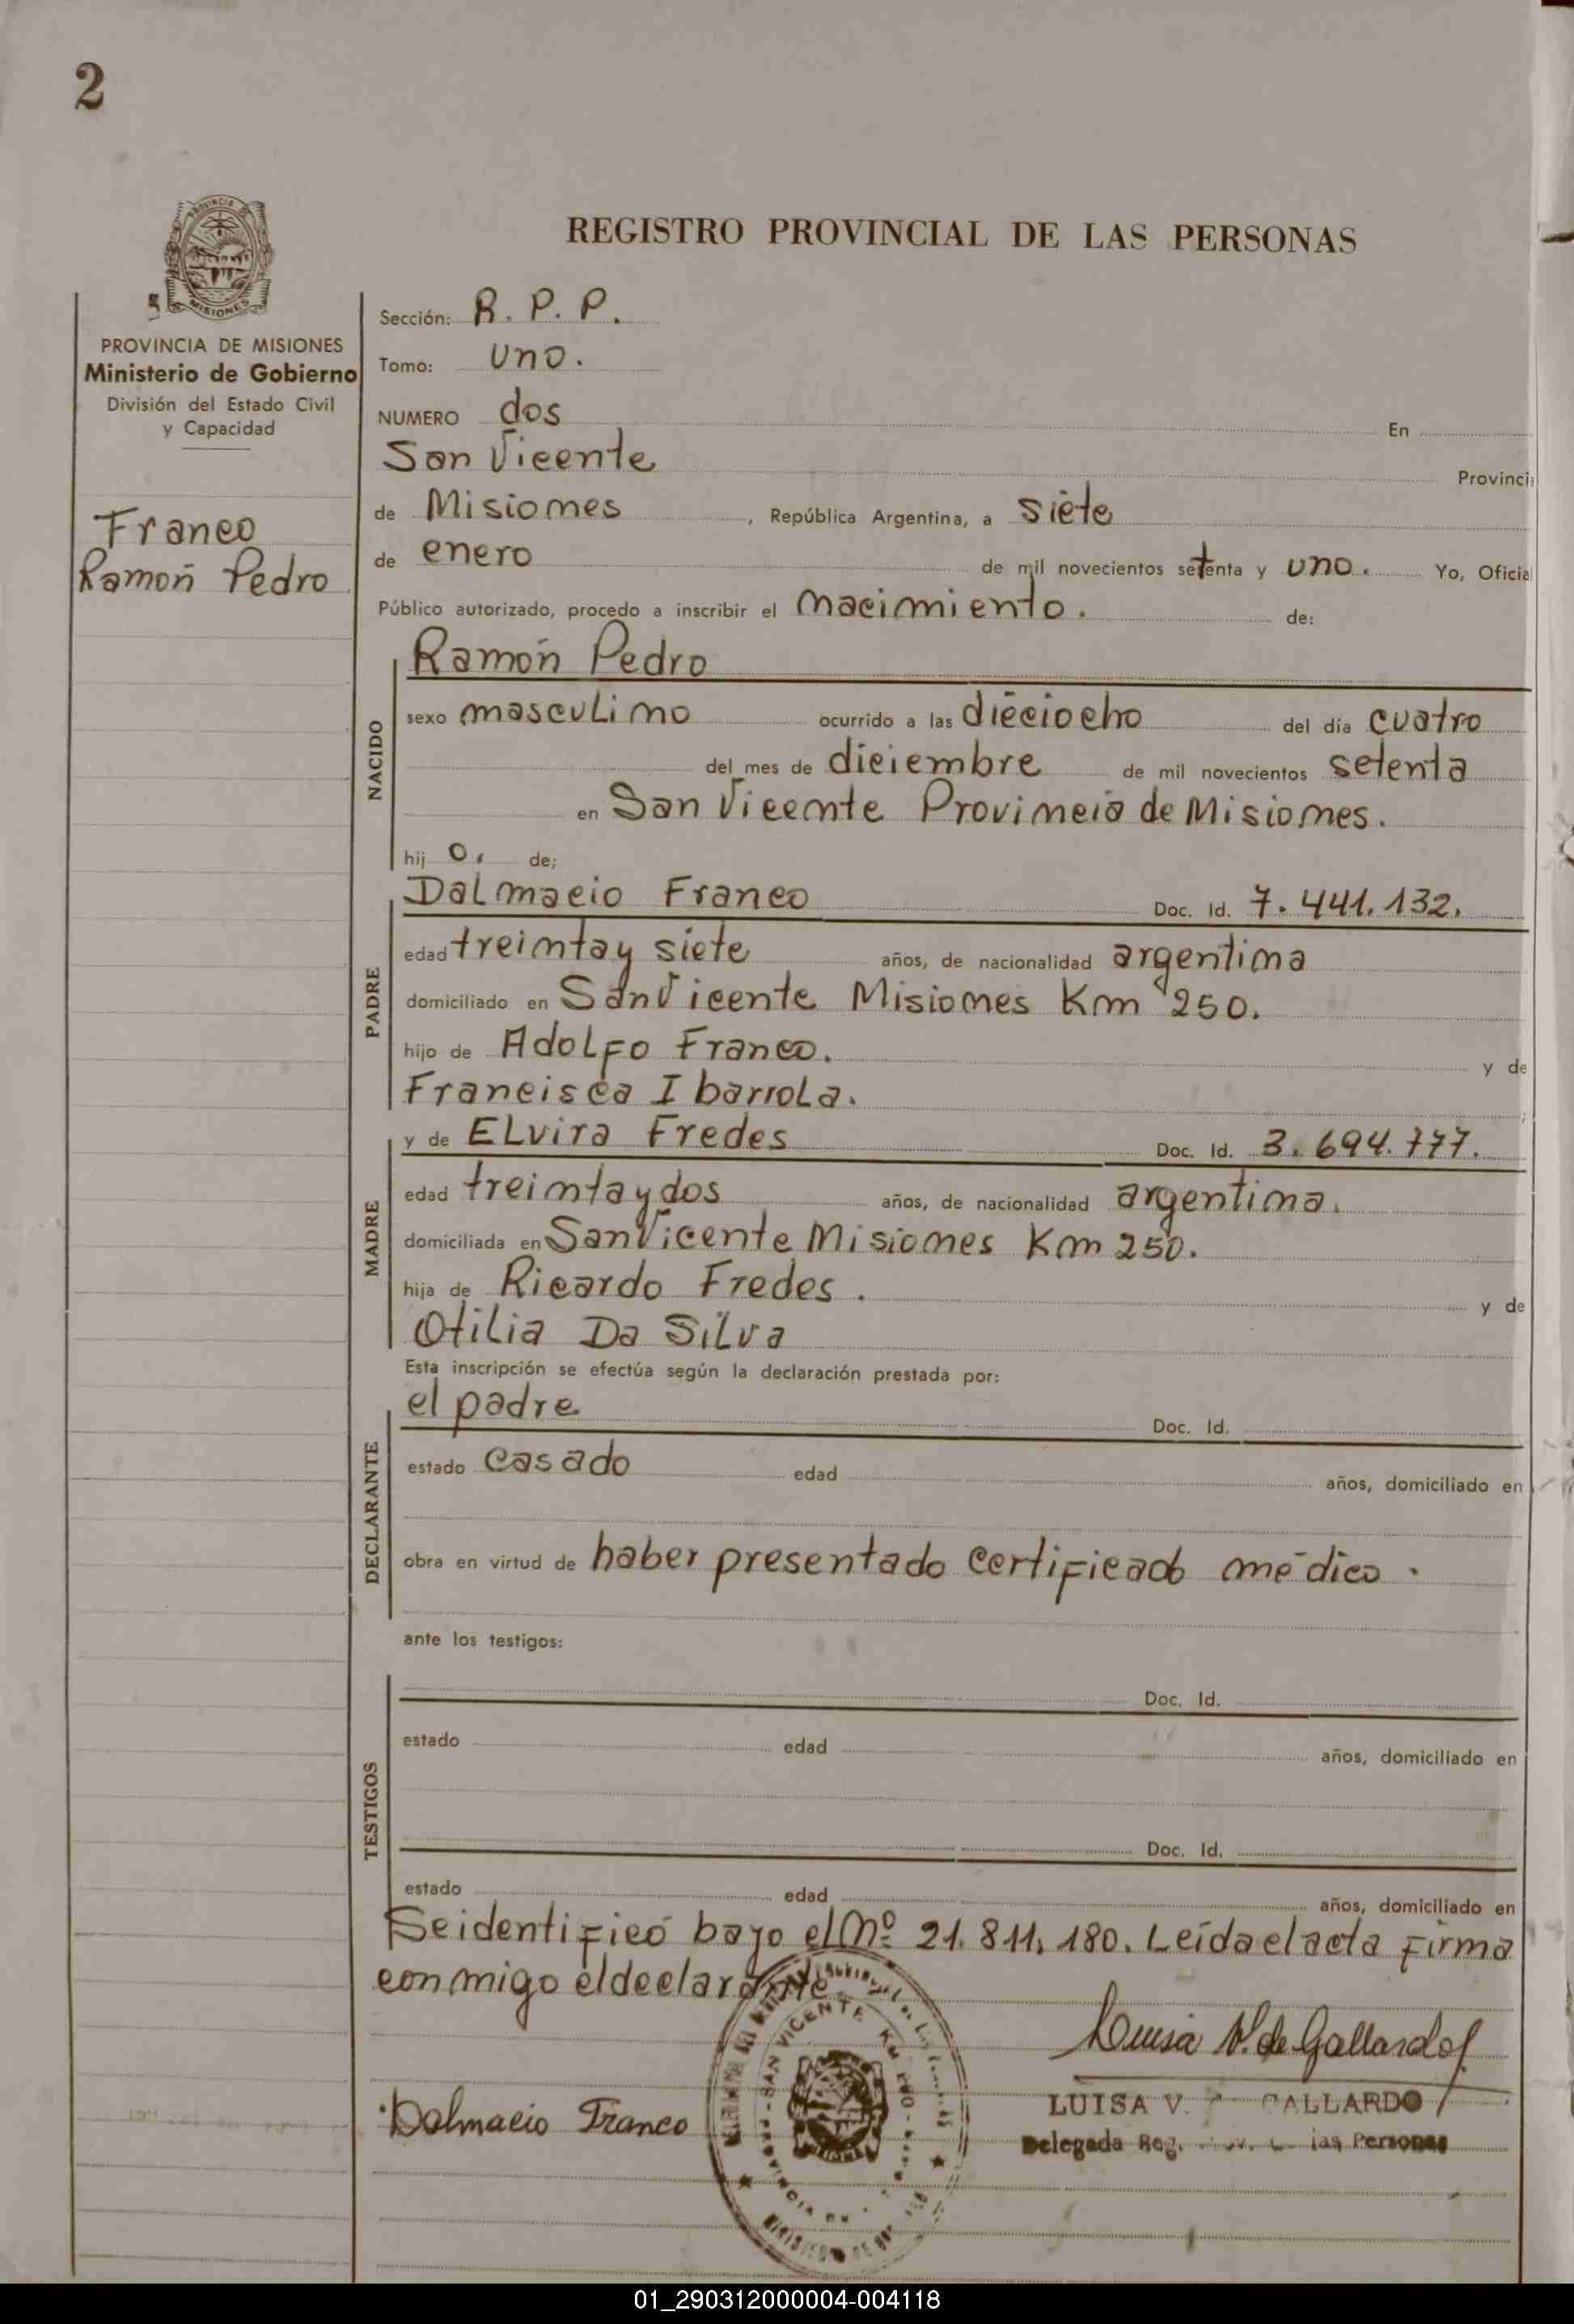 2
REGISTRO PROVINCIAL DE LAS PERSONAS
PROVINCIA DE MISIONES
Ministerio de Gobierno
División del Estado Civil
y Capacidad
Franco
Ramón Pedro
Sección: R. P. P.
Tomo: uno.
NUMERO dos En
San Vicente Provinci
de Misiones , República Argentina, a siete
de enero de mil novecientos setenta y uno. Yo, Oficial
Público autorizado, procedo a inscribir el nacimiento. de:
NACIDO
Ramón Pedro
sexo masculino ocurrido a las dieciocho del día cuatro
del mes de diciembre de mil novecientos setenta
en San Vicente Provincia de Misiones.
hij o. de;
PADRE
Dalmacio Franco Doc. Id. 7.441.132.
edad treinta y siete años, de nacionalidad argentina
domiciliado en San Vicente Misiones Km 250.
hijo de Adolfo Franco. y de
Francisca Ibarrola.
MADRE
y de Elvira Fredes Doc. Id. 3.694.777.
edad treinta y dos años, de nacionalidad argentina.
domiciliada en San Vicente Misiones Km 250.
hija de Ricardo Fredes. y de
Otilia Da Silva
Esta inscripción se efectúa según la declaración prestada por:
DECLARANTE
el padre Doc. Id.
estado casado edad años, domiciliado en
obra en virtud de haber presentado certificado médico.
ante los testigos:
TESTIGOS
Doc. Id.
estado edad años, domiciliado en
Doc. Id.
estado edad años, domiciliado en
Se identificó bajo el Nº 21.811.180. Leída el acta firma
conmigo el declarante
Luisa V. de Gallardo
Dalmacio Franco
LUISA V. GALLARDO
Delegada Reg. las Personas
SAN VICENTE KM
01_290312000004-004118